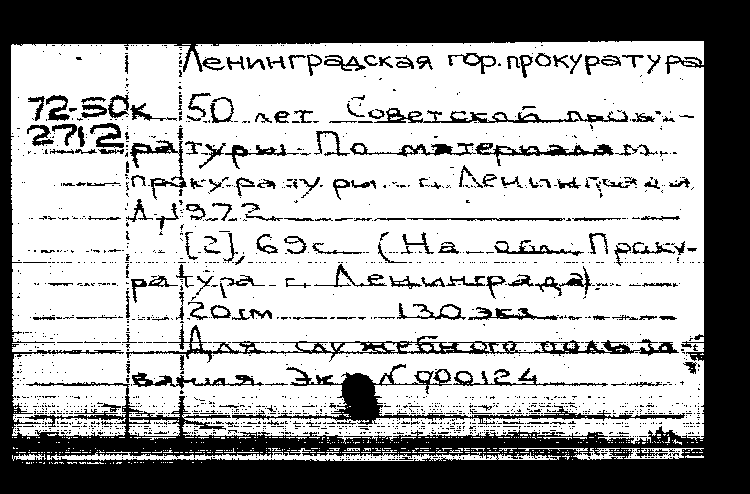 Ленинградская гор. прокуратура
72-50к
2712
50 лет Советской проку-
ратуры. По материалам
прокуратуры г. Ленинграда
Л., 1972
[2], 69 с. (На обл. Проку-
ратура г. Ленинграда)
20 см 130 экз
Для служебного пользо-
вания. Экз N 000124